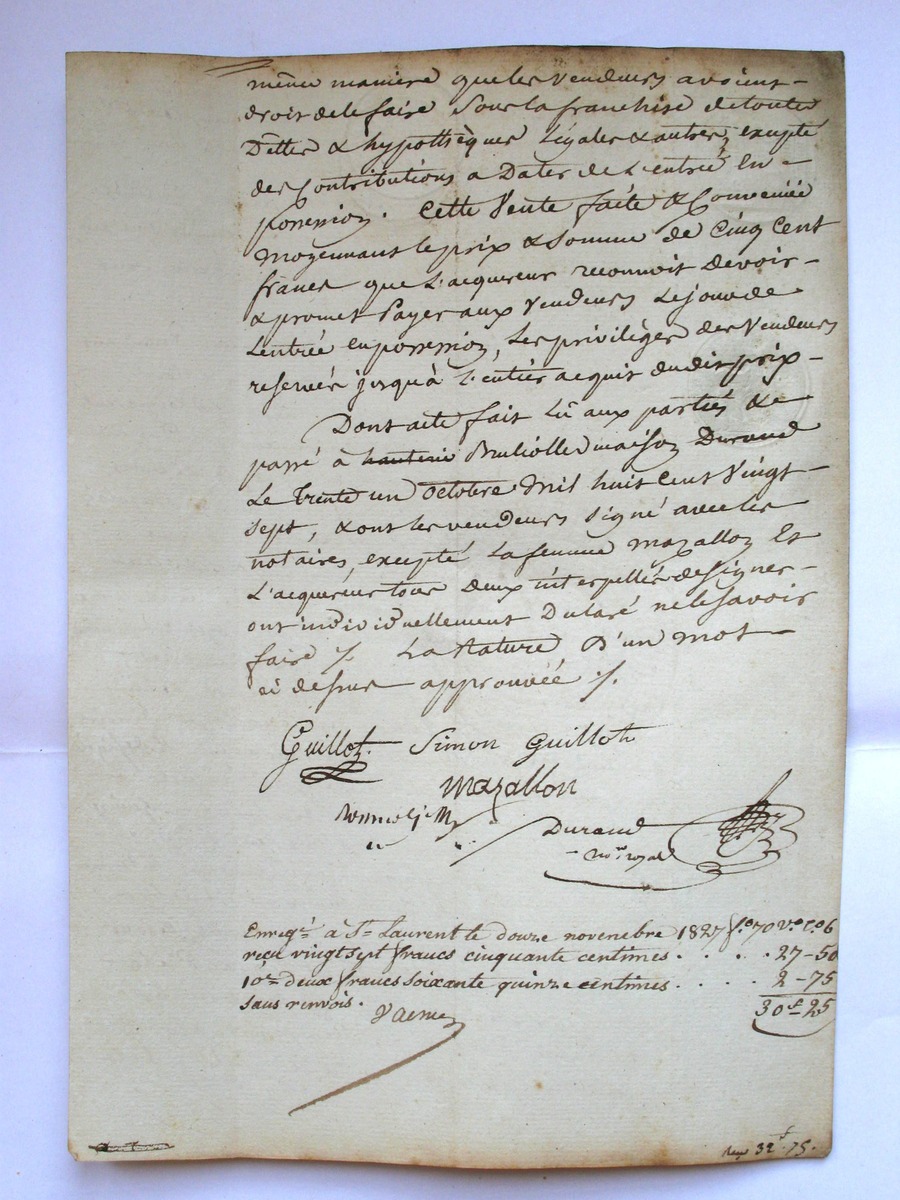 même maniere que les vendeurs avoient
droit de le faire sous la franchise de toutes
Dettes & hypothèques Légales & autres, excepté
des Contributions a Dater de L'entrée En
possession. Cette Vente faite & Convenüe
moyennant le prix & Somme de Cinq Cent
francs que L'acquereur reconnoit devoir
& promet Payer aux Vendeurs Le jour de
L'entrée en possession, Les privilèges des Vendeurs
reservés jusqu'à L'entier acquit dudit prix
Dont acte fait Lû aux parties &
passé à maison Durand
Le trente un Octobre Mil huit Cent Vingt
sept, & ont les vendeurs signé avec les
notaires, excepté La femme mazallon Et
L'acquereur tous deux interpellés de signer
ont individuellement Déclaré ne le savoir
faire ./. La Rature D'un mot
ci dessus approuvéé ./.
Guillot Simon Guillot
mazallon
Durand
nore royal
Enregé à St Laurent le douze novembre 1827 fo 70 Vo Co 6
reçu vingt sept francs cinquante centimes . . . . 27-50
10e deux francs soixante quinze centimes . . . . . 2-75
sans renvois. 30f-25
32f.75.